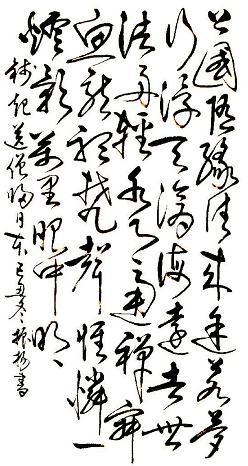 上國随緣住来途若夢
行浮天滄海遠去世
法舟輕水月通禅寂
魚龍聽梵聲惟憐一
燈影萬里眼中明
錢起送僧歸日本 己丑冬 書